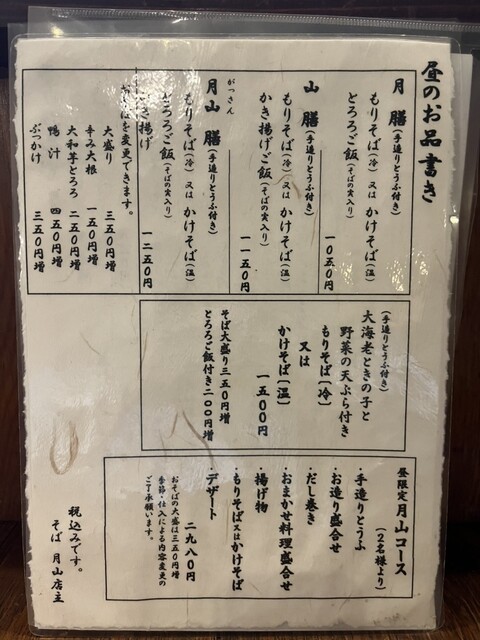 昼のお品書き
月 膳(手造りとうふ付き)
もりそば(冷)又はかけそば(温)
とろろご飯(そばの実入り)
一〇五〇円
山 膳(手造りとうふ付き)
もりそば(冷)又はかけそば(温)
かき揚げご飯(そばの実入り)
一一五〇円
がっさん
月山 膳(手造りとうふ付き)
もりそば(冷)又はかけそば(温)
とろろご飯(そばの実入り)
かき揚げ
一二五〇円
おそばを変更できます。
大盛り 三五〇円増
辛み大根 一五〇円増
大和芋とろろ 二五〇円増
鴨汁 四五〇円増
ぶっかけ 三五〇円増
(手造りとうふ付き)
大海老ときの子と
野菜の天ぷら付き
もりそば(冷)
又は
かけそば(温)
一五〇〇円
そば大盛り三五〇円増
とろろご飯付き二〇〇円増
昼限定月山コース
(2名様より)
・手造りとうふ
・お造り盛合せ
・だし巻き
・おまかせ料理盛合せ
・揚げ物
・もりそば又はかけそば
・デザート
二九八〇円
おそばの大盛は三五〇円増
季節・仕入による内容変更の
ご了承願います。
税込みです。
そば 月山店主